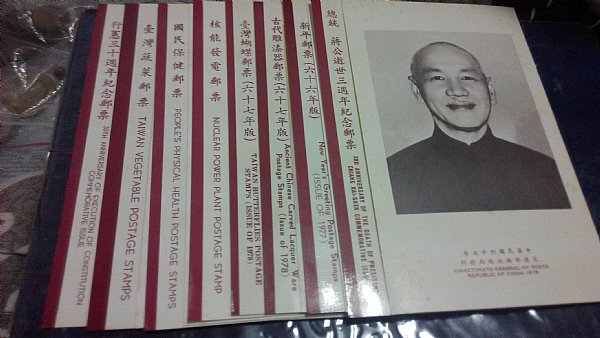 行憲三十週年紀念郵票
30TH ANNIVERSARY OF EXECUTION OF CONSTITUTION
COMMEMORATIVE ISSUE
臺灣蔬菜郵票
TAIWAN VEGETABLE POSTAGE STAMPS
國民保健郵票
PEOPLE'S PHYSICAL HEALTH POSTAGE STAMPS
核能發電郵票
NUCLEAR POWER PLANT POSTAGE STAMP
臺灣蝴蝶郵票(六十七年版)
TAIWAN BUTTERFLIES POSTAGE
STAMPS (ISSUE OF 1978)
古代雕漆器郵票(六十七年版)
Ancient Chinese Carved Lacquer Ware
Postage Stamps (Issue of 1978)
新年郵票(六十六年版)
New Year's Greeting Postage Stamps
(ISSUE OF 1977)
總統 蔣公逝世三週年紀念郵票
3RD ANNIVERSARY OF THE DEATH OF PRESIDENT
CHIANG KAI-SHEK COMMEMORATIVE
中華民國六十七年
交通部郵政總局發行
DIRECTORATE GENERAL OF POSTS
REPUBLIC OF CHINA 1978